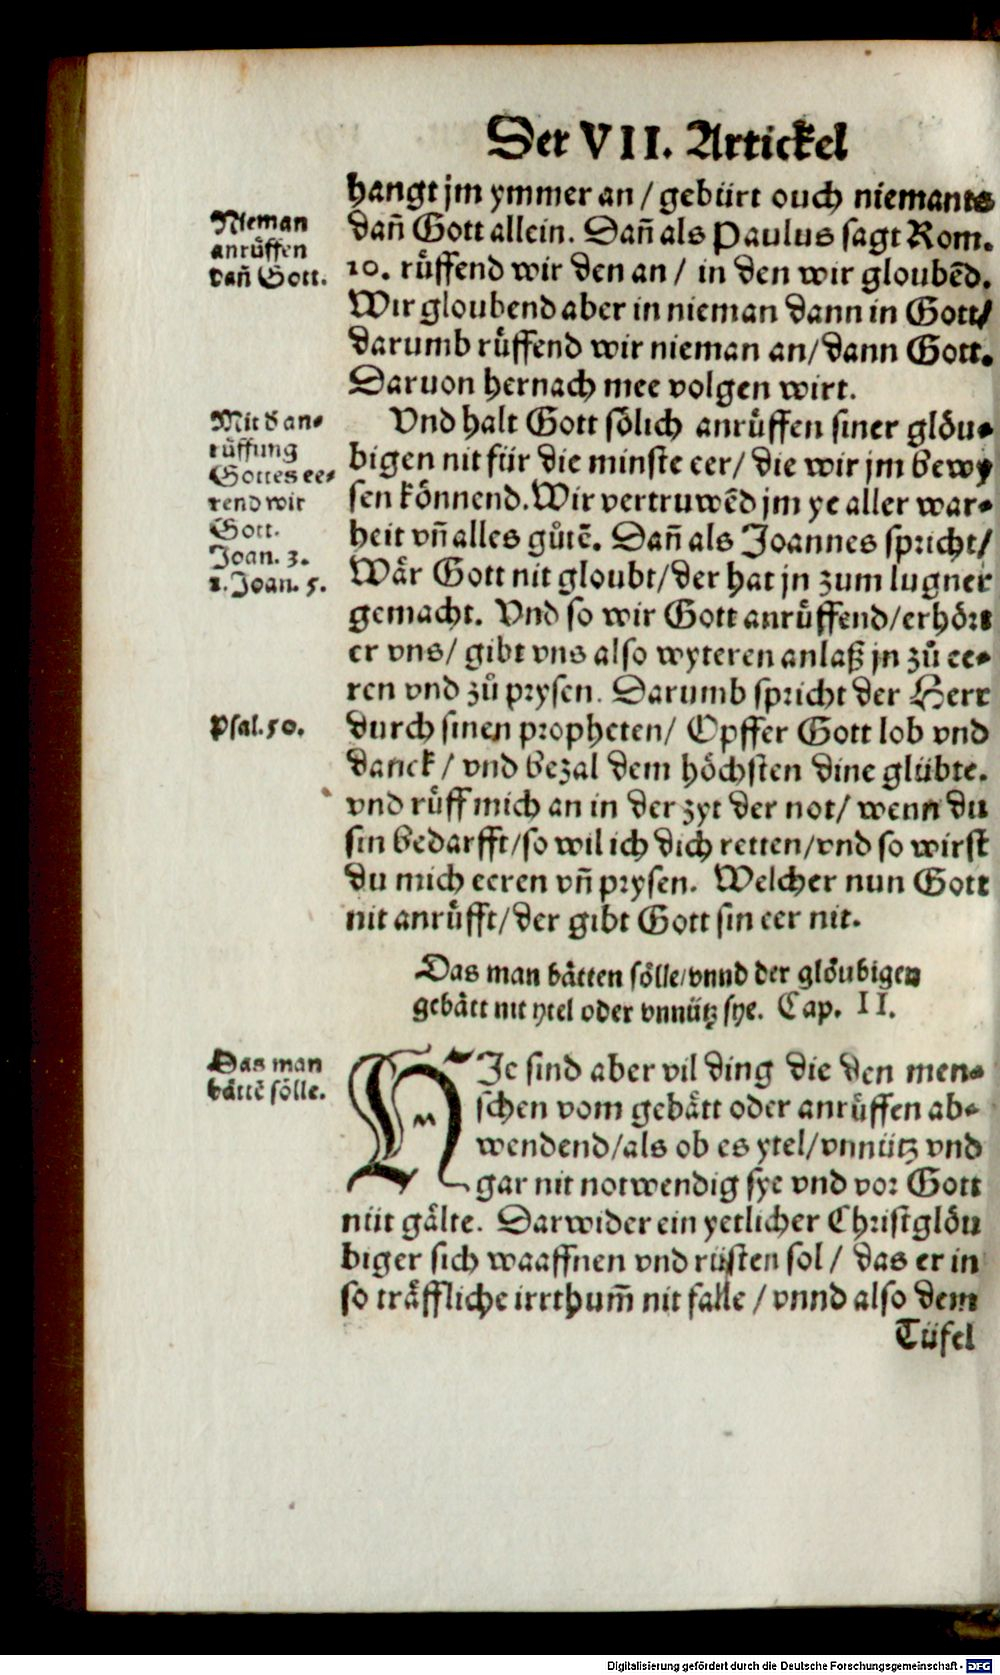 Der VII. Artickel
hangt jm ymmer an / gebürt ouch niemants
Nieman
anrůffen
dañ Gott.
dañ Gott allein. Dañ als Paulus sagt Rom.
10. růffend wir den an / in den wir gloubēd.
Wir gloubend aber in nieman dann in Gott/
darumb růffend wir nieman an/ dann Gott.
Daruon hernach mee volgen wirt.
Mit d an-
rüffung
Gottes ee-
rend wir
Gott.
Joan. 3.
1. Joan. 5.
Vnd halt Gott sölich anrůffen siner glöu-
bigen nit für die minste eer/ die wir jm bewy
sen könnend. Wir vertruwēd jm ye aller war-
heit vñ alles gůtē. Dañ als Joannes spricht/
Wär Gott nit gloubt/ der hat jn zum lugner
gemacht. Vnd so wir Gott anrůffend/ erhört
er vns/ gibt vns also wyteren anlaß jn zů ee-
ren vnd zů prysen. Darumb spricht der Herr
Psal. 50.
durch sinen propheten/ Opffer Gott lob vnd
danck / vnd bezal dem höchsten dine glübte.
vnd růff mich an in der zyt der not/ wenn du
sin bedarfft/ so wil ich dich retten/ vnd so wirst
du mich eeren vñ prysen. Welcher nun Gott
nit anrůfft/ der gibt Gott sin eer nit.
Das man bätten sölle/ vnnd der glöubigen
gebätt nit ytel oder vnnütz sye. Cap. II.
Das man
bättē sölle.
NJe sind aber vil ding die den men-
schen vom gebätt oder anrůffen ab-
wendend/ als ob es ytel/ vnnütz vnd
gar nit notwendig sye vnd vor Gott
nüt gälte. Darwider ein yetlicher Christglöu
biger sich waaffnen vnd rüsten sol / das er in
so träffliche irrthum̃ nit falle / vnnd also dem
Tüfel
Digitalisierung gefördert durch die Deutsche Forschungsgemeinschaft - DFG